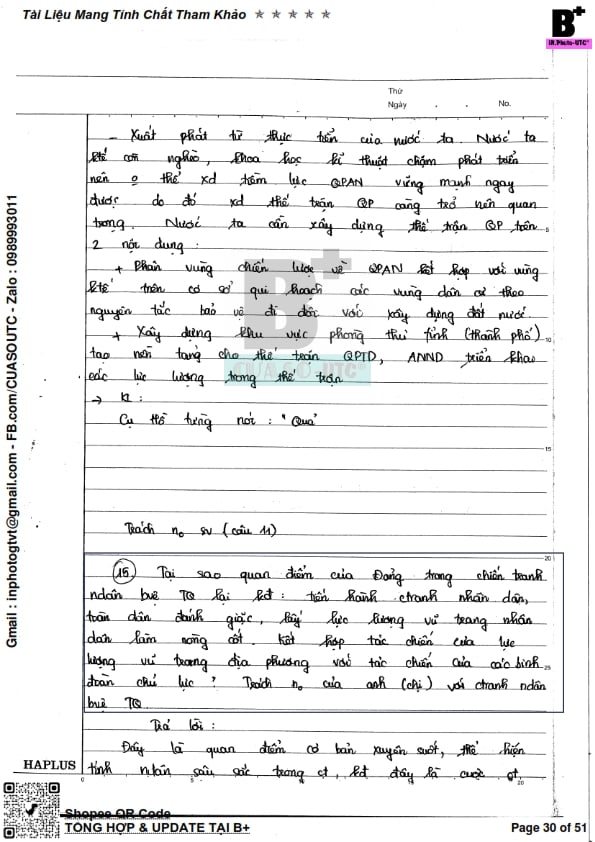 Tài Liệu Mang Tính Chất Tham Khảo ★ ★ ★ ★ ★
B+
IN.Photo-UTC
Thứ
Ngày . . No.
- Xuất phát từ thực tiễn của nước ta. Nước ta
ktế còn nghèo, khoa học kĩ thuật chậm phát triển
nên 0 thể xd tiềm lực QPAN vững mạnh ngay
được do đó xd thế trận QP càng trở nên quan
trọng. Nước ta cần xây dựng thế trận QP trên
2 nội dung :
+ Phân vùng chiến lược về QPAN kết hợp với vùng
ktế trên cơ sở qui hoạch các vùng dân cư theo
nguyên tắc bảo vệ đi đôi với xây dựng đất nước.
+ Xây dựng khu vực phòng thủ tỉnh (thành phố)
tạo nền tảng cho thế trận QPTD, ANND triển khai
các lực lượng trong thế trận
→ KL :
Cụ Hồ từng nói : "Quả
Trách no sv (câu 11)
15 Tại sao quan điểm của Đảng trong chiến tranh
ndân bvệ TQ lại kđ : tiến hành ctranh nhân dân,
toàn dân đánh giặc, lấy lực lượng vũ trang nhân
dân làm nòng cốt. Kết hợp tác chiến của lực
lượng vũ trang địa phương với tác chiến của các binh
đoàn chủ lực ? Trách no của anh (chị) với ctranh ndân
bvệ TQ
Trả lời :
Đây là quan điểm cơ bản xuyên suốt, thể hiện
tính nhân sâu sắc trong ct, kđ đây là cuộc ct
5
10
15
20
25
0
5
10
15
20
HAPLUS
Gmail : inphotogtvt@gmail.com - FB.com/CUASOUTC - Zalo : 0989993011
B+
CUASO-UTC
Shopee QR Code
TỔNG HỢP & UPDATE TẠI B+
Page 30 of 51